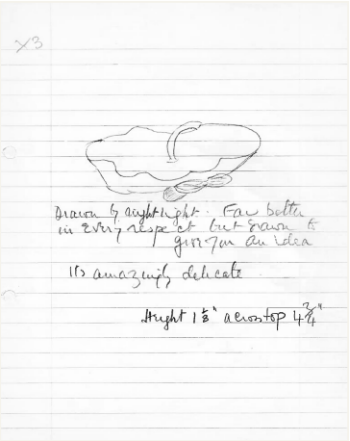 X3
Drawn by night light. Far better
in every respect but drawn to
give you an idea
Its amazingly delicate
Height 1 1/8" across top 4 3/4"